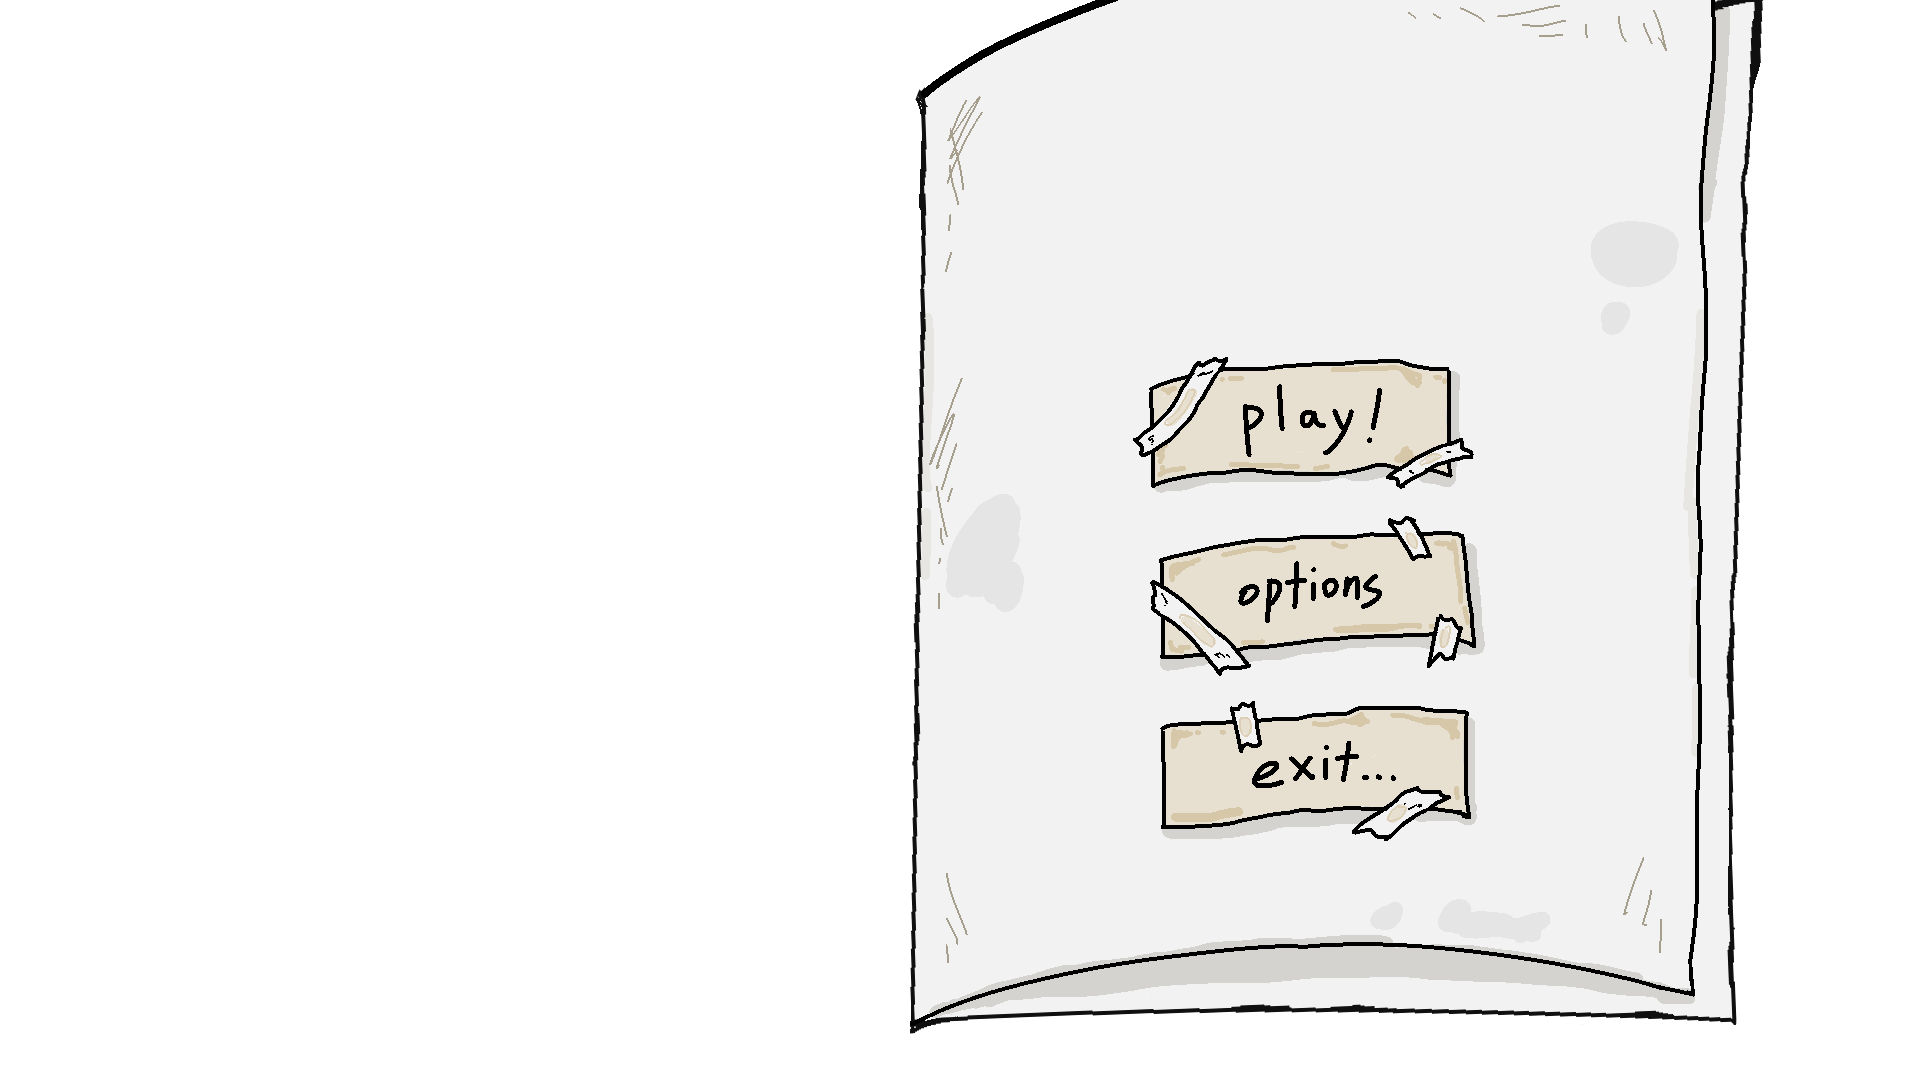 play!
options
exit...